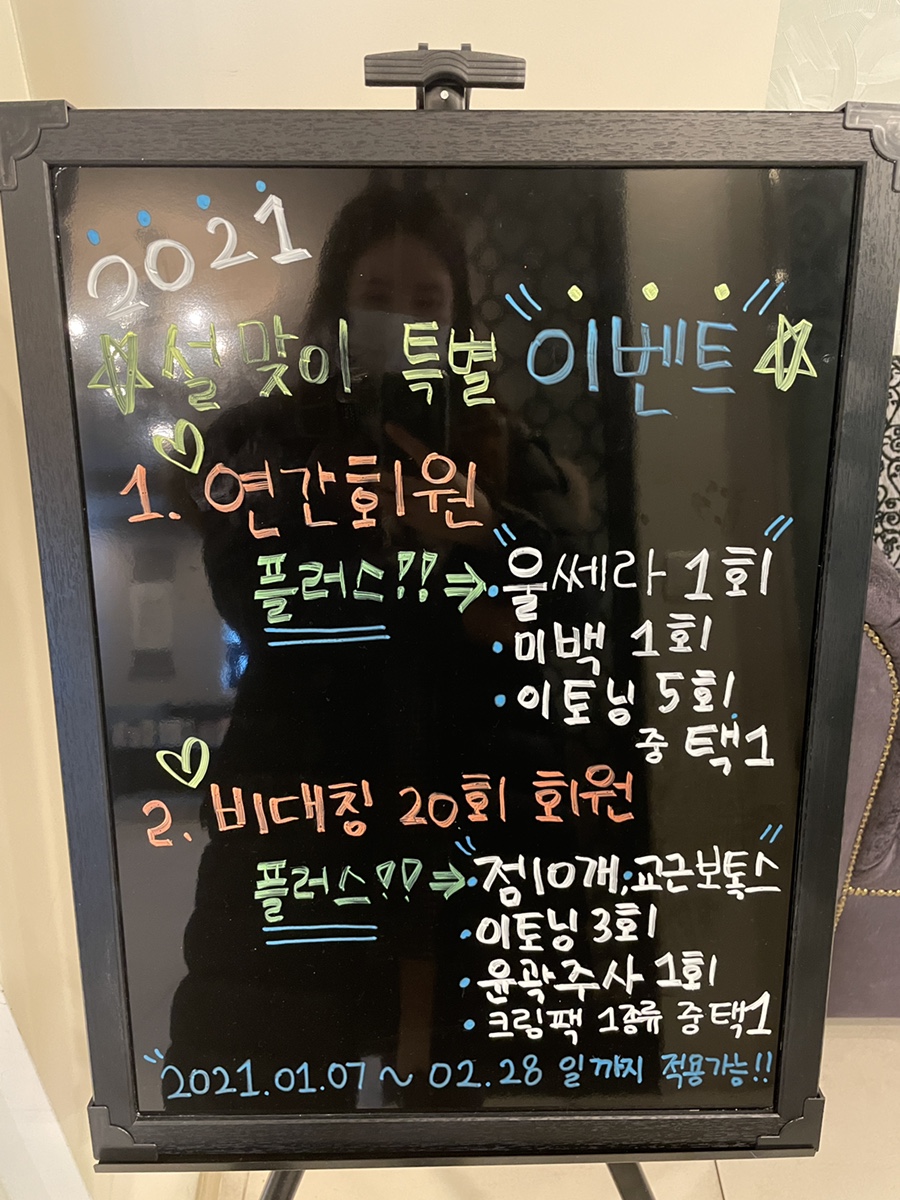 2021
설 맞이 특별 "이벤트"
1. 연간회원
플러스!! ⇒ "• 울쎄라 1회"
• 미백 1회
• 이토닝 5회
중 택1
2. 비대칭 20회 회원
플러스!! ⇒ "• 점10개, • 교근보톡스"
• 이토닝 3회
• 윤곽주사 1회
• 크림팩 1종류 중 택1
"2021.01.07 ~ 02.28 일까지 적용가능!!